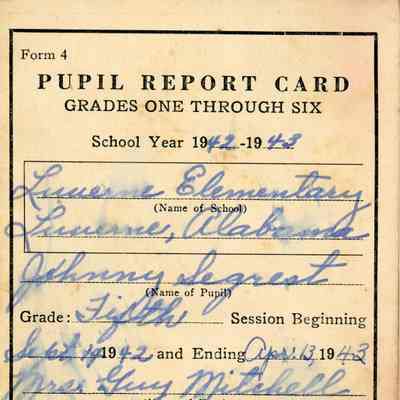 Form 4
PUPIL REPORT CARD
GRADES ONE THROUGH SIX
School Year 1942-1943
Luverne Elementary
(Name of School)
Luverne, Alabama
Johnny Segrest
(Name of Pupil)
Grade: Fifth Session Beginning
1942 and Ending Apr. 13, 1943
Mrs. Guy Mitchell